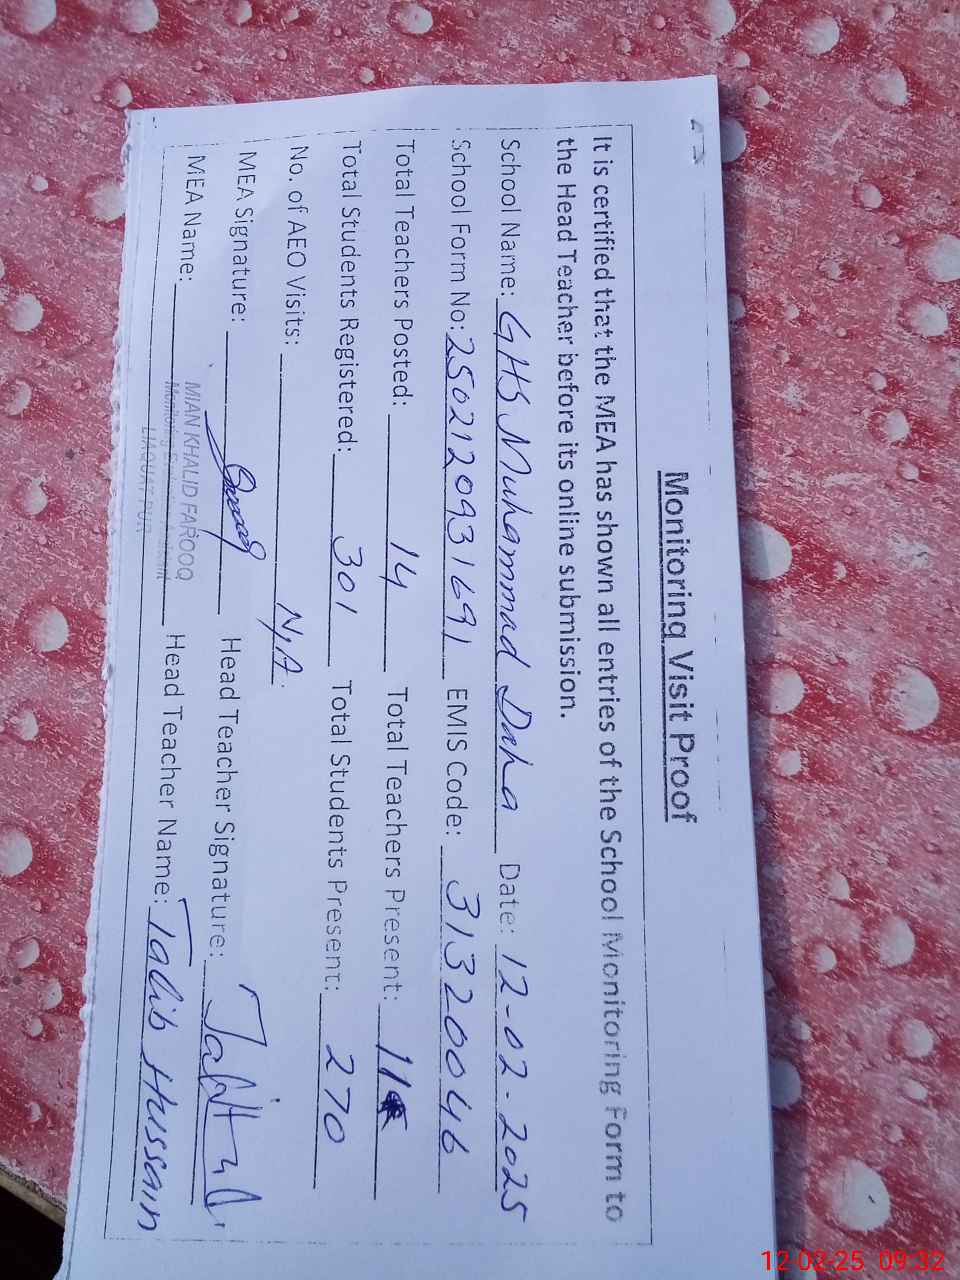 Monitoring Visit Proof
It is certified that the MEA has shown all entries of the School Monitoring Form to
the Head Teacher before its online submission.
School Name: GHS Muhammad Daha Date: 12-02-2025
School Form No: 2502120931691 EMIS Code: 31320046
Total Teachers Posted: 14 Total Teachers Present: 11
Total Students Registered: 301 Total Students Present: 270
No. of AEO Visits: N,A.
MEA Signature: Head Teacher Signature:
MEA Name: MIAN KHALID FAROOQ Head Teacher Name: Talib Hussain
Monitoring
LIAQUATPUR
12-02-25 09:32